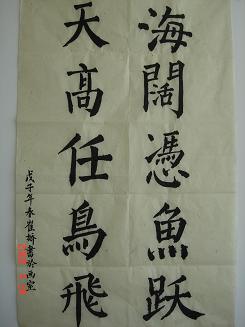 海闊憑魚跃
天高任鳥飛
戊子年春崔桥書於画室